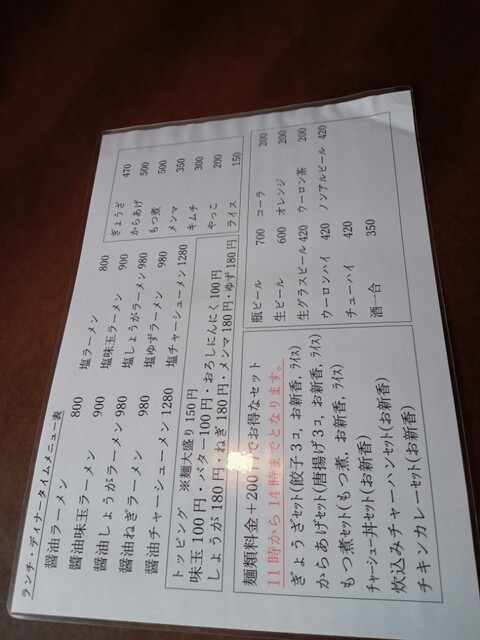 ランチ・ディナータイムメニュー表
醤油ラーメン 800
醤油味玉ラーメン 900
醤油しょうがラーメン 980
醤油ねぎラーメン 980
醤油チャーシューメン 1280
塩ラーメン 800
塩味玉ラーメン 900
塩しょうがラーメン 980
塩ゆずラーメン 980
塩チャーシューメン 1280
ぎょうざ 470
からあげ 500
もつ煮 500
メンマ 350
キムチ 300
やっこ 200
ライス 150
トッピング ※麺大盛り150円
味玉100円・バター100円・おろしにんにく100円
しょうが180円・ねぎ180円・メンマ180円・ゆず180円
麺類料金+200円でお得なセット
11時から14時までとなります。
ぎょうざセット(餃子3コ, お新香, ライス)
からあげセット(唐揚げ3コ, お新香, ライス)
もつ煮セット(もつ煮, お新香, ライス)
チャーシュー丼セット(お新香)
炊込みチャーハンセット(お新香)
チキンカレーセット(お新香)
瓶ビール 700
生ビール 600
生グラスビール 420
ウーロンハイ 420
チューハイ 420
酒一合 350
コーラ 200
オレンジ 200
ウーロン茶 200
ノンアルビール 420